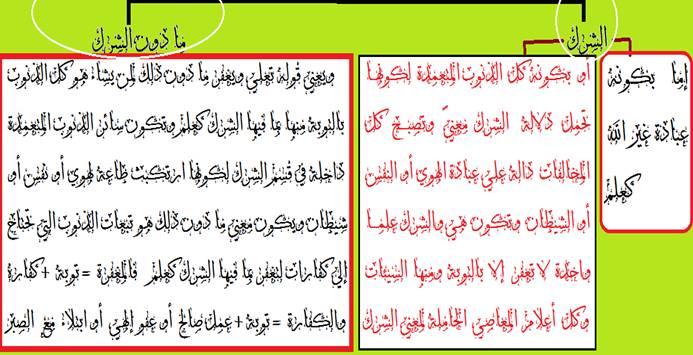 الشرك
ما دون الشرك
إما بكونه
عبادة غير الله
كعلم
أو بكونه كل الذنوب المتعمدة لكونها
تحمل دلالة الشرك معنيً وتصبح كل
المخالفات دالة علي عبادة الهوي أو النفس
أو الشيطان وتكون هي والشرك علما
واحدة لا تغفر إلا بالتوبة ومنها السيئات
وكل أعلام المعاصي الحاملة لمعني الشرك
ويعني قوله تعلي ويغفر ما دون ذلك لمن يشاء: هو كل الذنوب
بالتوبة منها بما فيها الشرك كعلم وتكون سائر الذنوب المتعمدة
داخلة في قسم الشرك لكونها ارتكبت طاعة لهوي أو نفس أو
شيطان ويكون معني ما دون ذلك هو تبعات الذنوب التي تحتاج
إلي كفارات لتغفر بما فيها الشرك كعلم فالمغفرة = توبة + كفارة
والكفارة = توبة + عمل صالح أو عفو إلهي أو ابتلاء مع الصبر